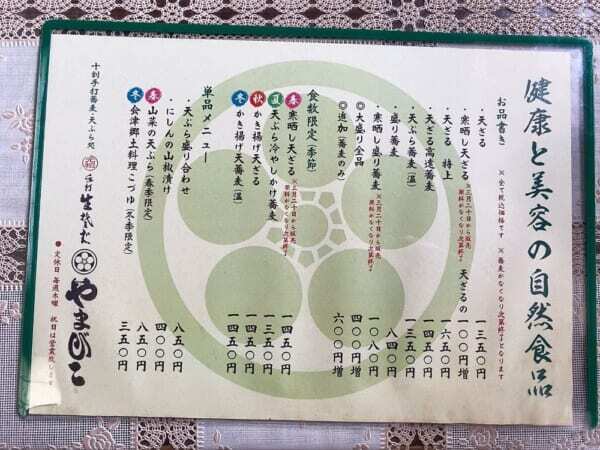 健康と美容の自然食品
お品書き ※全て税込価格です ※蕎麦がなくなり次第終了となります
・天ざる 一三五〇円
・寒晒し天ざる ※三月二十日から販売 原料がなくなり次第終了 天ざるの一〇〇円増
・天ざる 特上 一六五〇円
・天ざる高遠蕎麦 一四五〇円
・天ぷら蕎麦(温) 一三五〇円
・盛り蕎麦 九五〇円
・寒晒し盛り蕎麦 ※三月二十日から販売 原料がなくなり次第終了 一〇八〇円
◎大盛り全品 四〇〇円増
◎追加(蕎麦のみ) 六〇〇円増
食数限定(季節)
春 寒晒し天ざる ※三月二十日から販売 原料がなくなり次第終了 一四五〇円
夏 天ぷら冷やしかけ蕎麦 一三五〇円
秋 かき揚げ天ざる 一四五〇円
冬 かき揚げ天蕎麦(温) 一四五〇円
単品メニュー
・天ぷら盛り合わせ 八五〇円
・にしんの山椒漬け 四〇〇円
春 山菜の天ぷら(春季限定) 八五〇円
冬 会津郷土料理こづゆ(冬季限定) 三五〇円
十割手打蕎麦・天ぷら処
生そば
やまびこ
●定休日 毎週木曜 祝日は営業致します